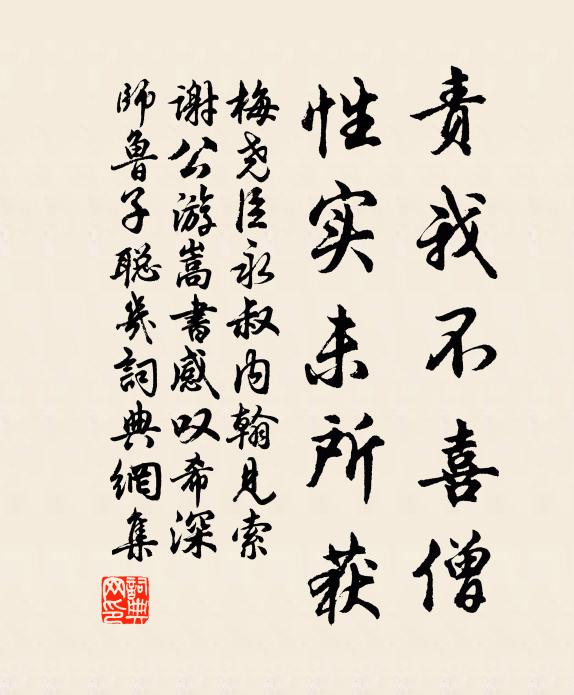 责我不喜僧
性实未所获
梅尧臣永叔内翰见索
谢公游嵩書感叹希深
师鲁子聪几詞典網集
詞典网印